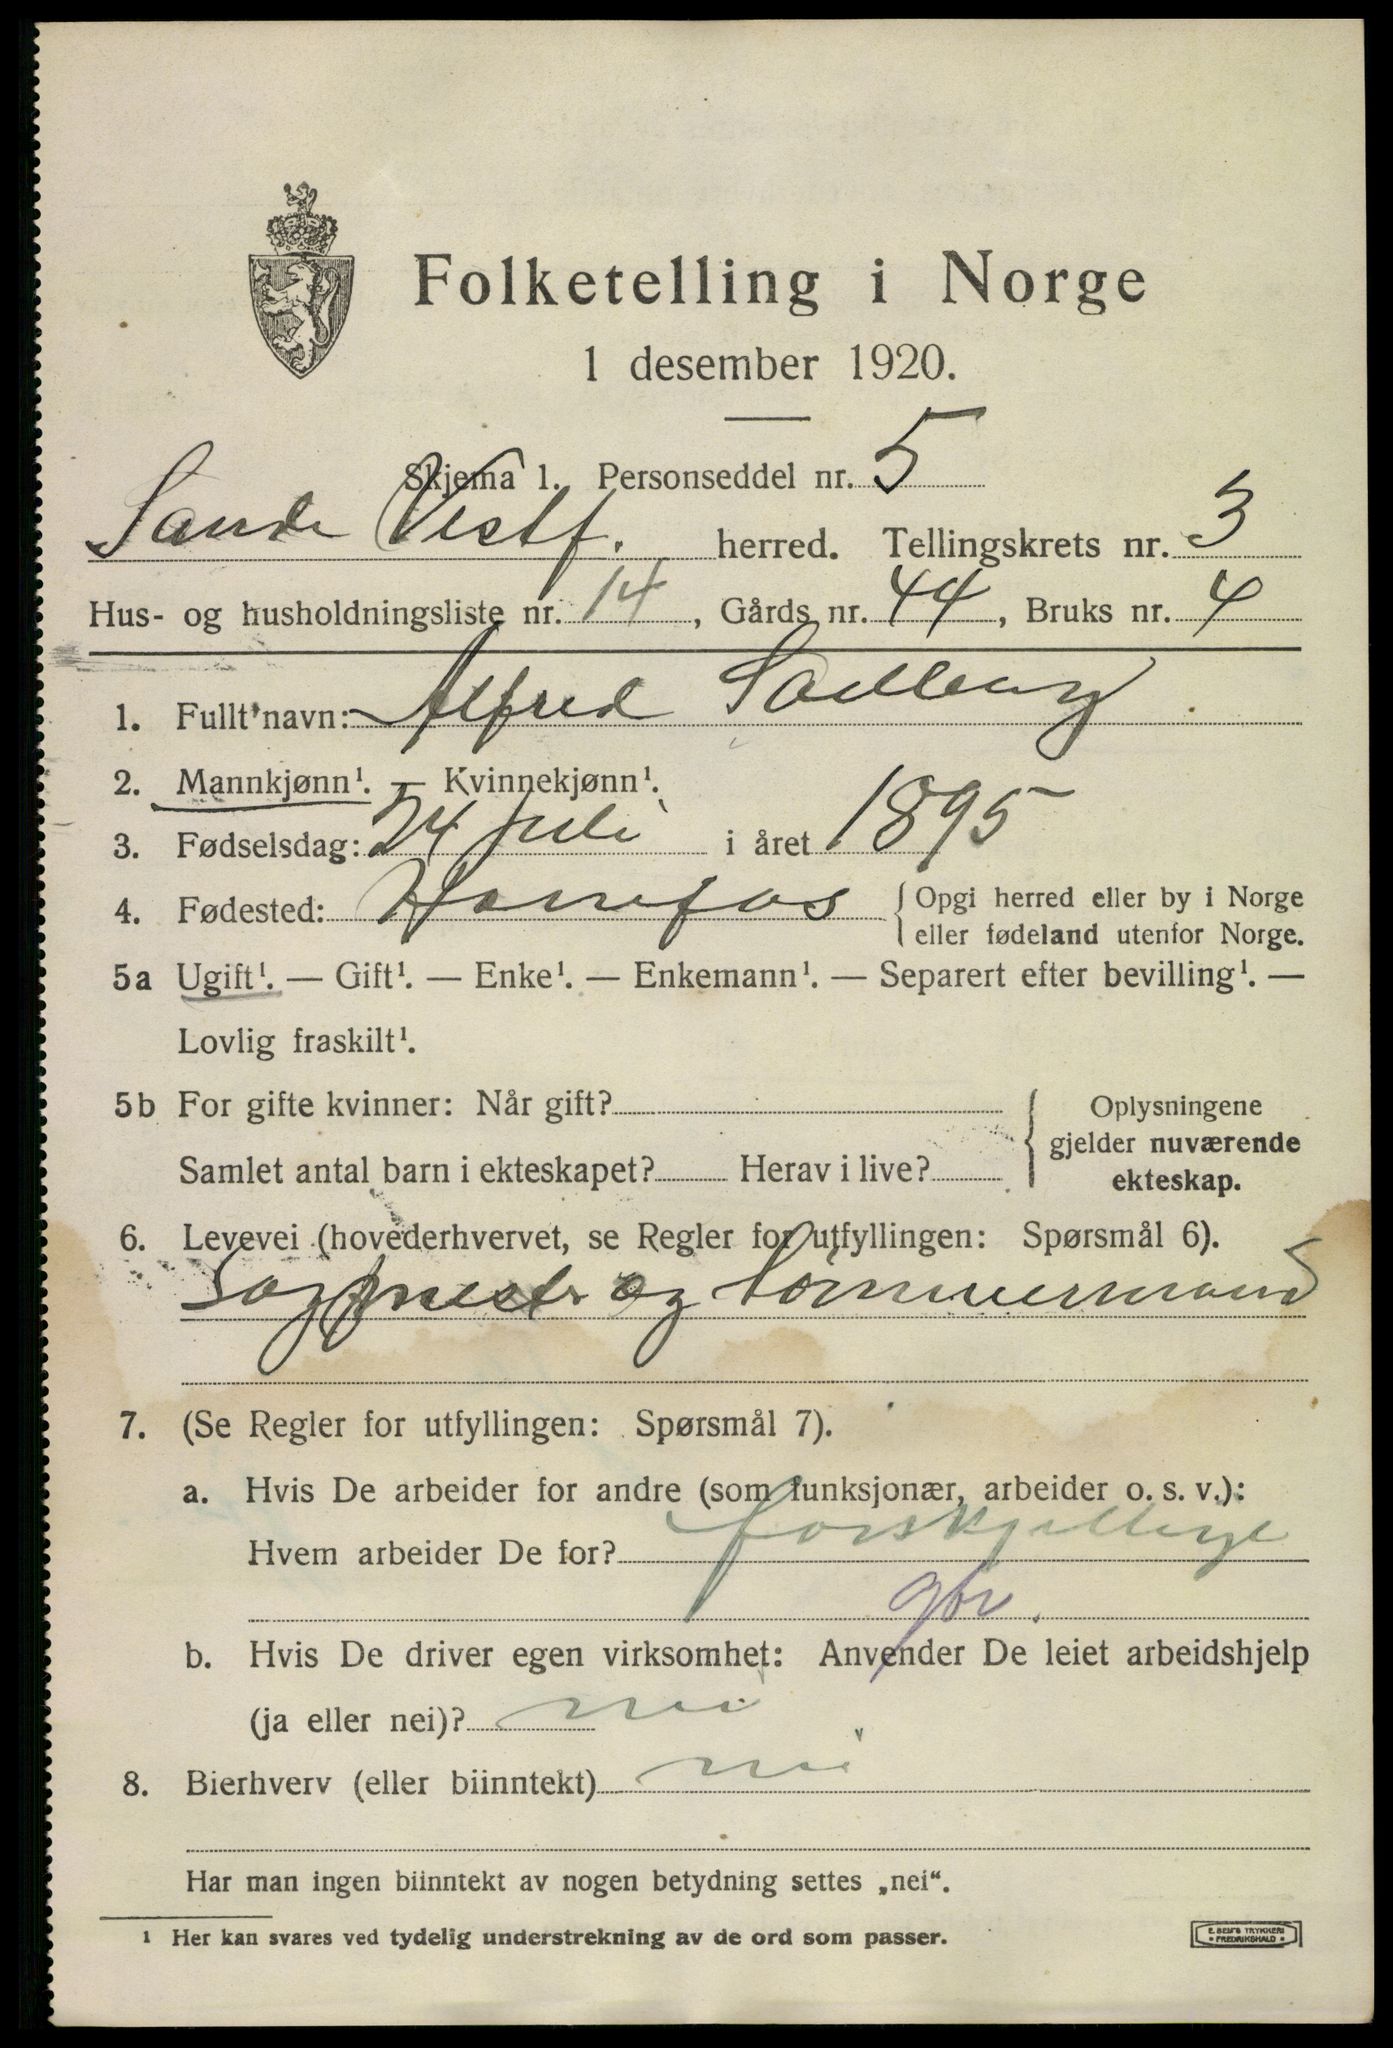 Folketelling i Norge
1 desember 1920.
Skjema 1. Personseddel nr. 5
Sande Vestf. herred. Tellingskrets nr. 3
Hus- og husholdningsliste nr. 14, Gårds nr. 44, Bruks nr. 4
1. Fullt navn: Alfred Solberg
2. Mannkjønn¹. — Kvinnekjønn¹.
3. Fødselsdag: 24 juli i året 1895
4. Fødested: Hønefos { Opgi herred eller by i Norge
eller fødeland utenfor Norge.
5a Ugift¹. — Gift¹. — Enke¹. — Enkemann¹. — Separert efter bevilling¹. —
Lovlig fraskilt¹.
5b For gifte kvinner: Når gift? { Oplysningene
gjelder nuværende
Samlet antal barn i ekteskapet? Herav i live?
ekteskap.
6. Levevei (hovederhvervet, se Regler for utfyllingen: Spørsmål 6).
og Tømmermand
7. (Se Regler for utfyllingen: Spørsmål 7).
a. Hvis De arbeider for andre (som funksjonær, arbeider o. s. v.):
Hvem arbeider De for? forskjellige
gbr.
b. Hvis De driver egen virksomhet: Anvender De leiet arbeidshjelp
(ja eller nei)? nei
8. Bierhverv (eller biinntekt) nei
Har man ingen biinntekt av nogen betydning settes „nei“.
¹ Her kan svares ved tydelig understrekning av de ord som passer.
E. SEM'S TRYKKERI
• FREDRIKSHALD •